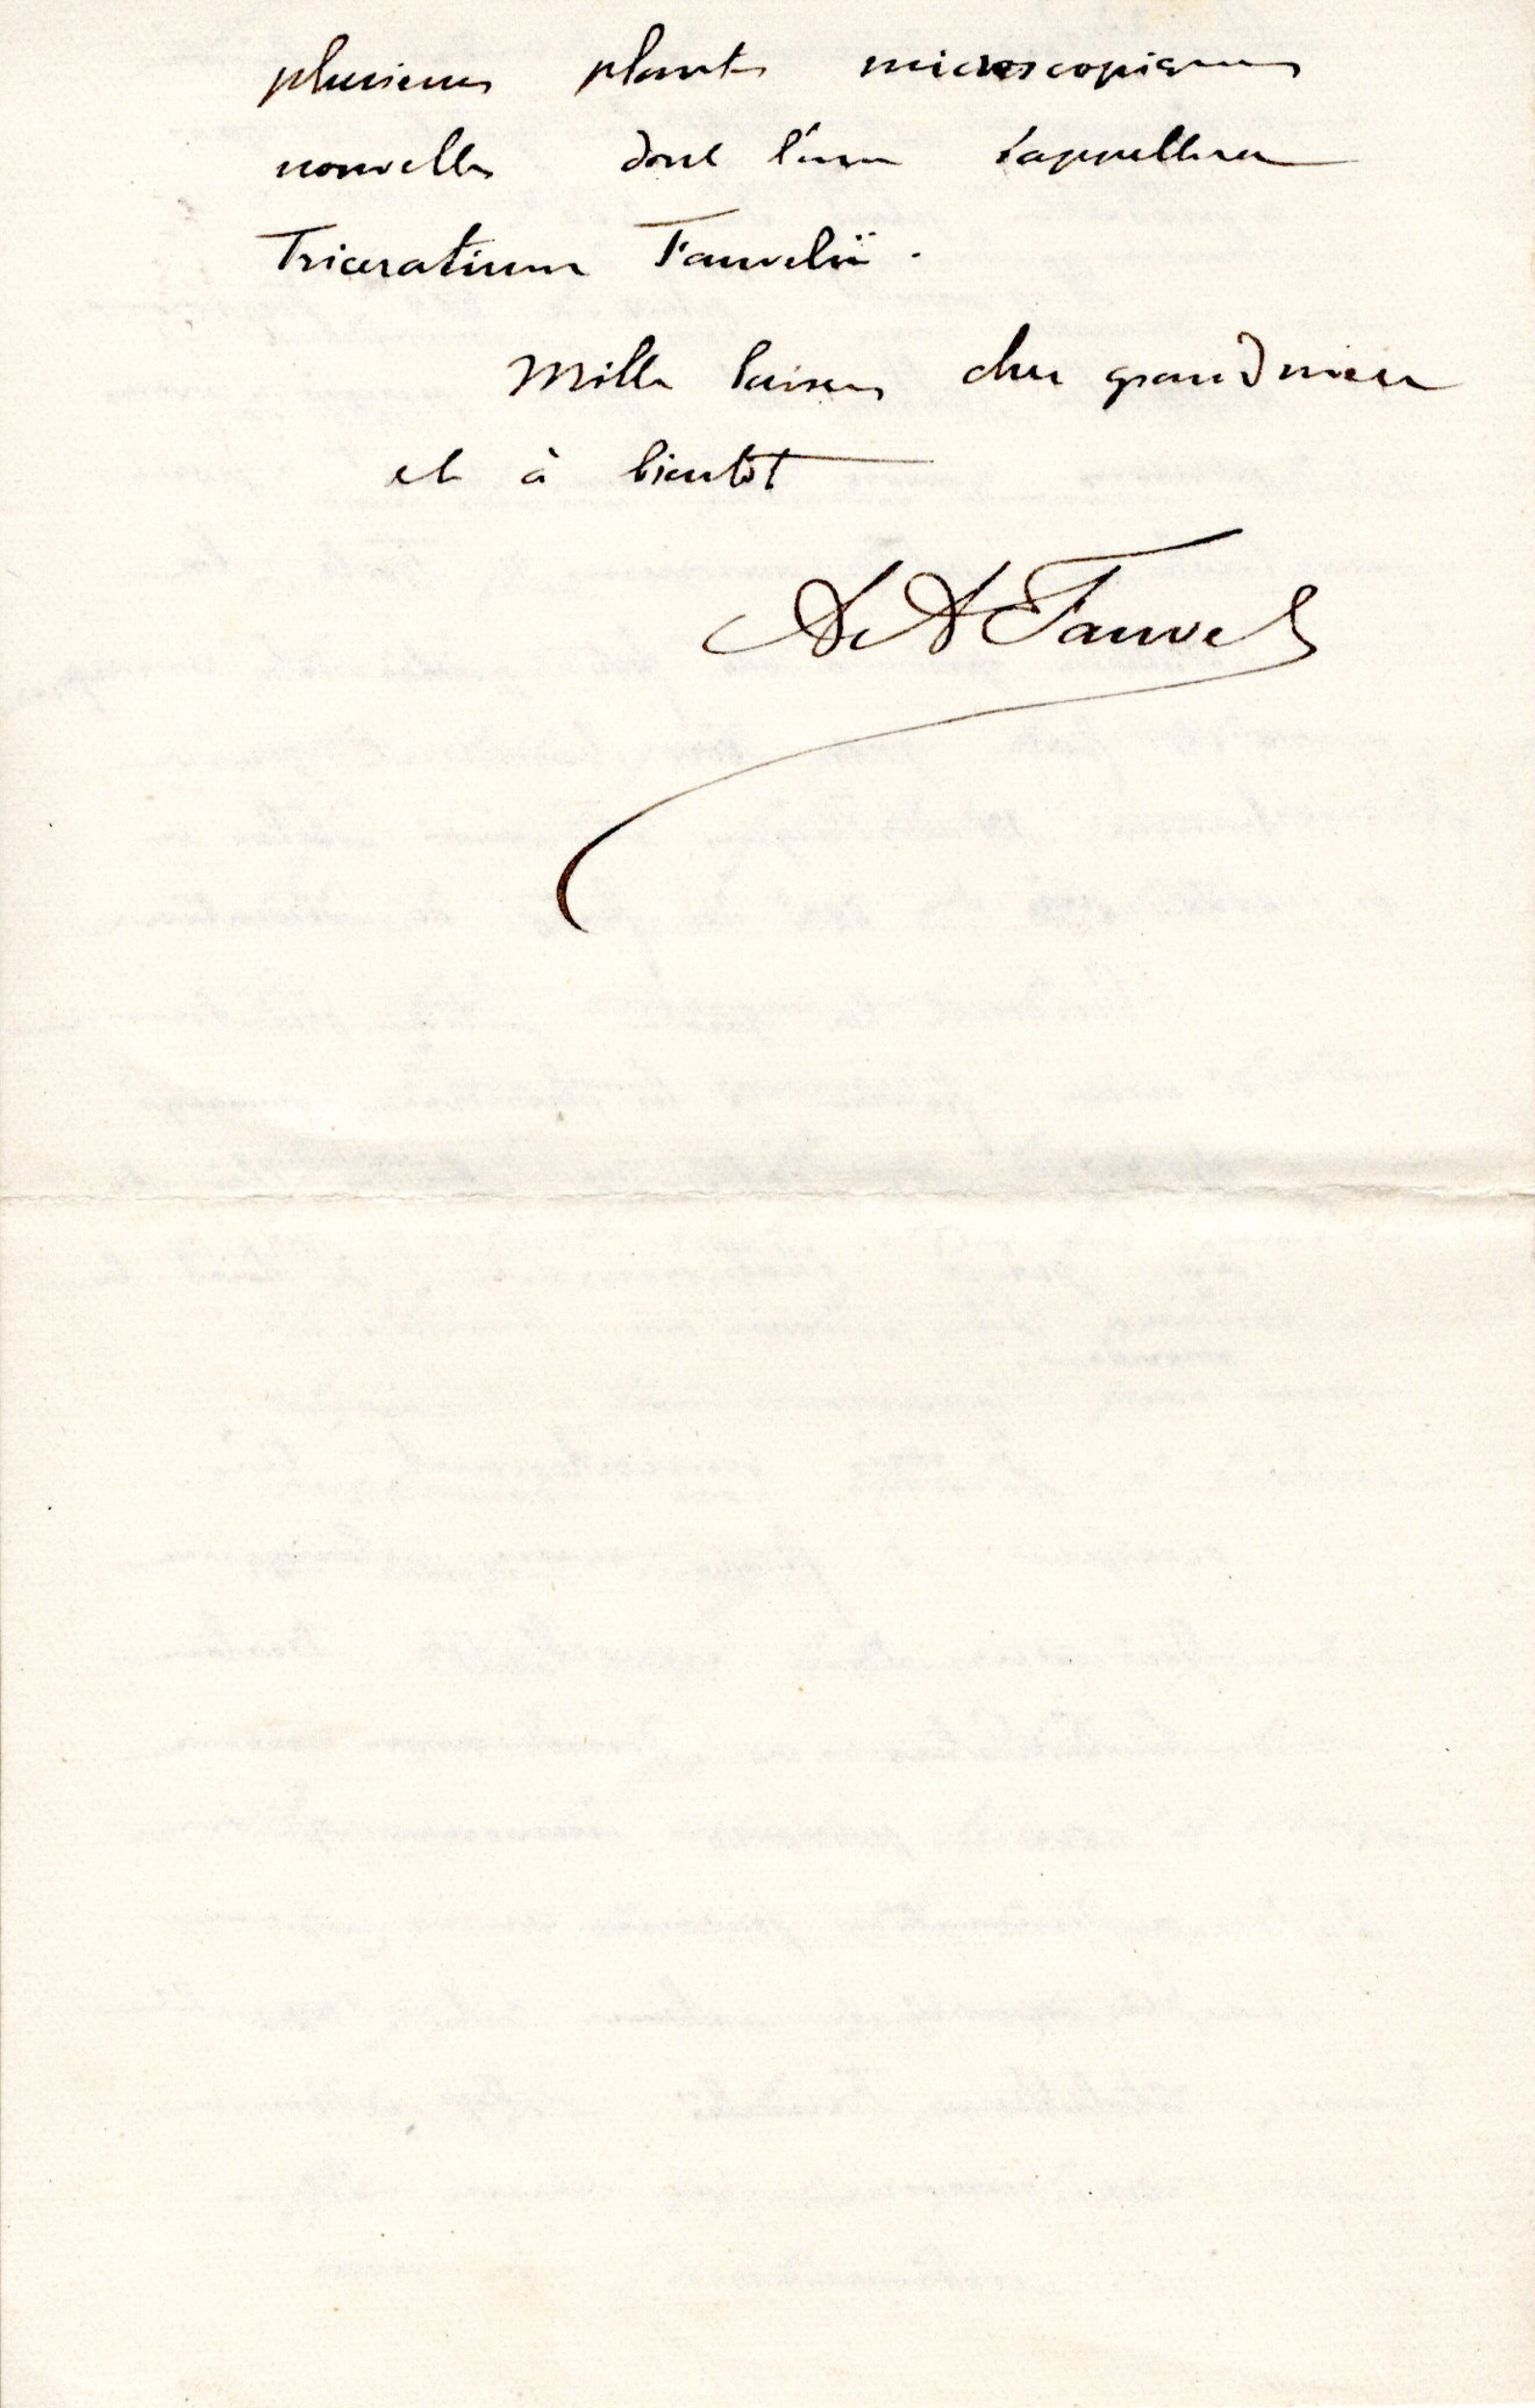 plusieurs plantes microscopiques
nouvelles dont l'une s'appellera
Triceratium Fauvelii.
Mille baisers chère grand mère
et à bientôt
A A Fauvel